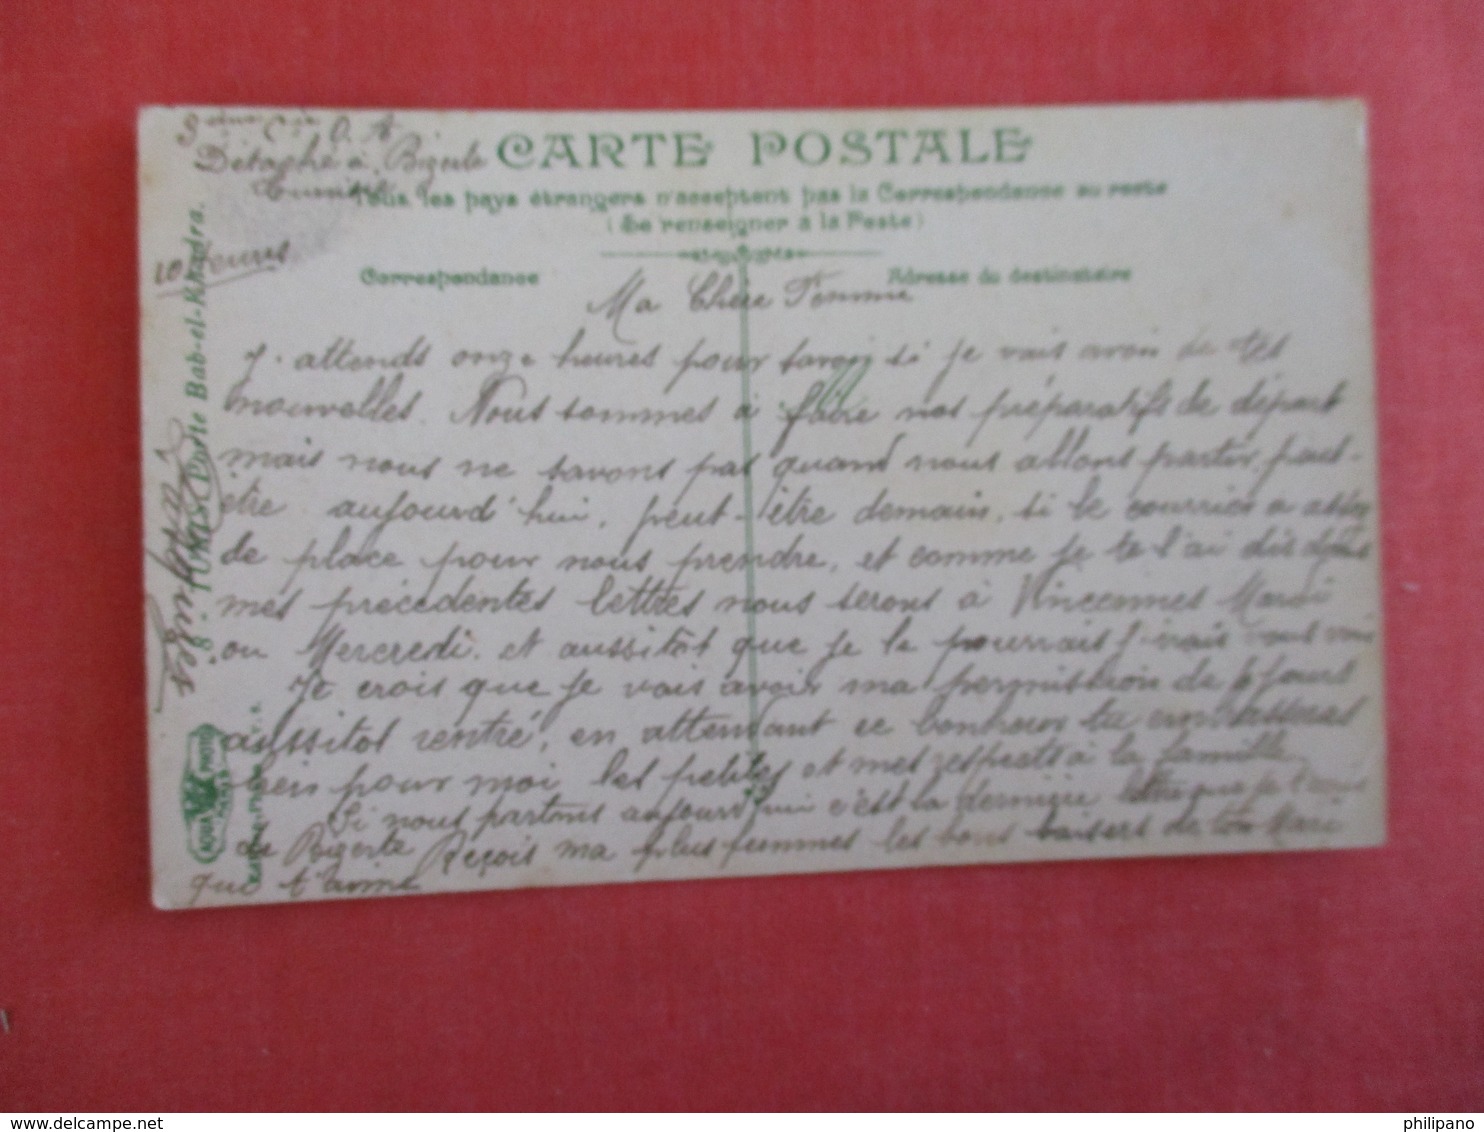 3ème Cie O. A
Détaché à Bizerte
Tunisie
10 heures
CARTE POSTALE
Tous les pays étrangers n'acceptent pas la Correspondance au recto
(Se renseigner à la Poste)
Correspondance
Adresse du destinataire
Ma Chere Femme
J. attends onze heures pour savoir si je vais avoir de tes
nouvelles. Nous sommes à faire nos préparatifs de départ
mais nous ne savons pas quand nous allons partir, peut-
être aujourd'hui, peut-être demain, si le courrier a assez
de place pour nous prendre, et comme je te l'ai dis dans
mes précédentes lettres nous serons à Vincennes Mardi
ou Mercredi. et aussitôt que je le pourrais j'irais vous voir
Je crois que je vais avoir ma permission de jours
aussitot rentré, en attendant ce bonheur tu embrasseras
bien pour moi les petites et mes respects à la famille
Si nous partons aujourd'hui c'est la dernière lettre que je t'
de Bizerte Reçois ma plus femmes les bons baisers de ton Mari
que t'aime
8 - TUNIS - Porte Bab-el-Khadra.
AQUA PHOTO
PARIS
philipano
https://www.delcampe.net